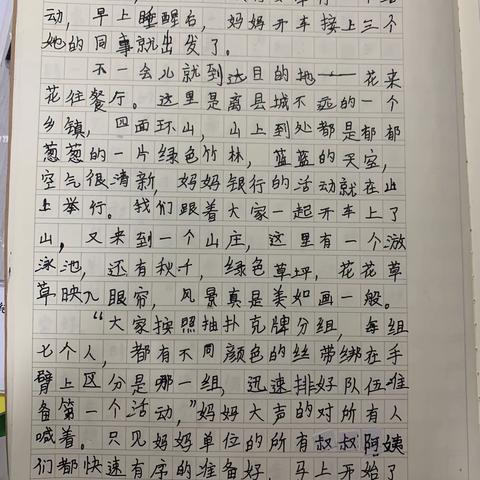 动，早上睡醒后，妈妈开车接上三个
她的同事就出发了。
不一会儿就到达目的地——花来
花往餐厅。这里是离县城不远的一个
乡镇，四面环山，山上到处都是郁郁
葱葱的一片绿色竹林，蓝蓝的天空，
空气很清新，妈妈银行的活动就在山
上举行。我们跟着大家一起开车上了
山，又来到一个山庄，这里有一个游
泳池，还有秋千，绿色草坪，花花草
草映入眼帘，风景真是美如画一般。
“大家按照抽扑克牌分组，每组
七个人，都有不同颜色的丝带绑在手
臂上区分是哪一组，迅速排好队伍准
备第一个活动，”妈妈大声的对所有人
喊着。只见妈妈单位的所有叔叔阿姨
们都快速有序的准备好，马上开始了